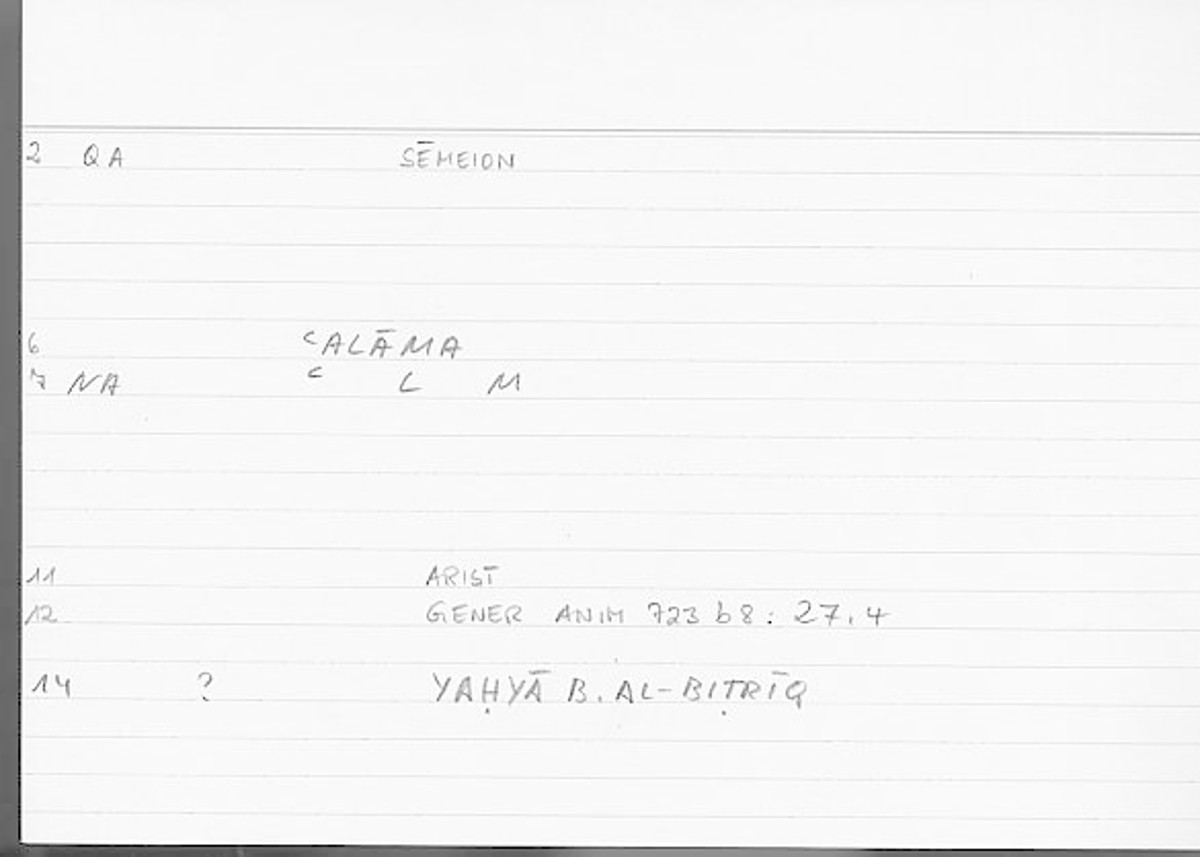 2 QA SĒMEION
6 ʿALĀMA
7 NA ʿ L M
11 ARIST
12 GENER ANIM 723 b 8 : 27.4
14 ? YAḤYĀ B. AL-BIṬRĪQ